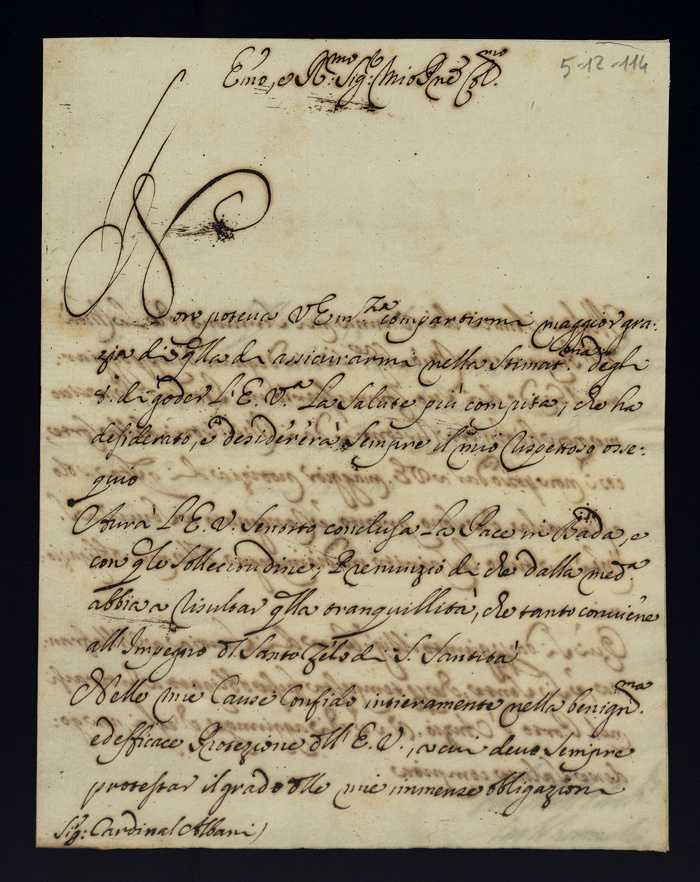 Emo, e Rmo: Sig: Mio Pne Colmo.
5-12-114
Non poteva V Emza compartirmi maggior gra:
zia di qlla di assicurarmi nella Stimatma degli
8. di goder L'E. Va La Salute più compita, che ha
desiderato, e desidererà sempre il mio rispettoso osse:
quio
Aurà L'E. V. Sentito conclusa La Pace in Bada, e
con qle Sollecitudine; Prenunzio di che dalla meda
abbia a risultar qlla tranquillità, che tanto conviene
all'Impegno dl Santo Zelo di S. Santità
Nelle mie Cause Confido intieramente nella benignma
ed efficace Protezione dll'E. V., a cui devo sempre
protestar il grado dlle mie immense obligazioni
Sig: Cardinal Albani)